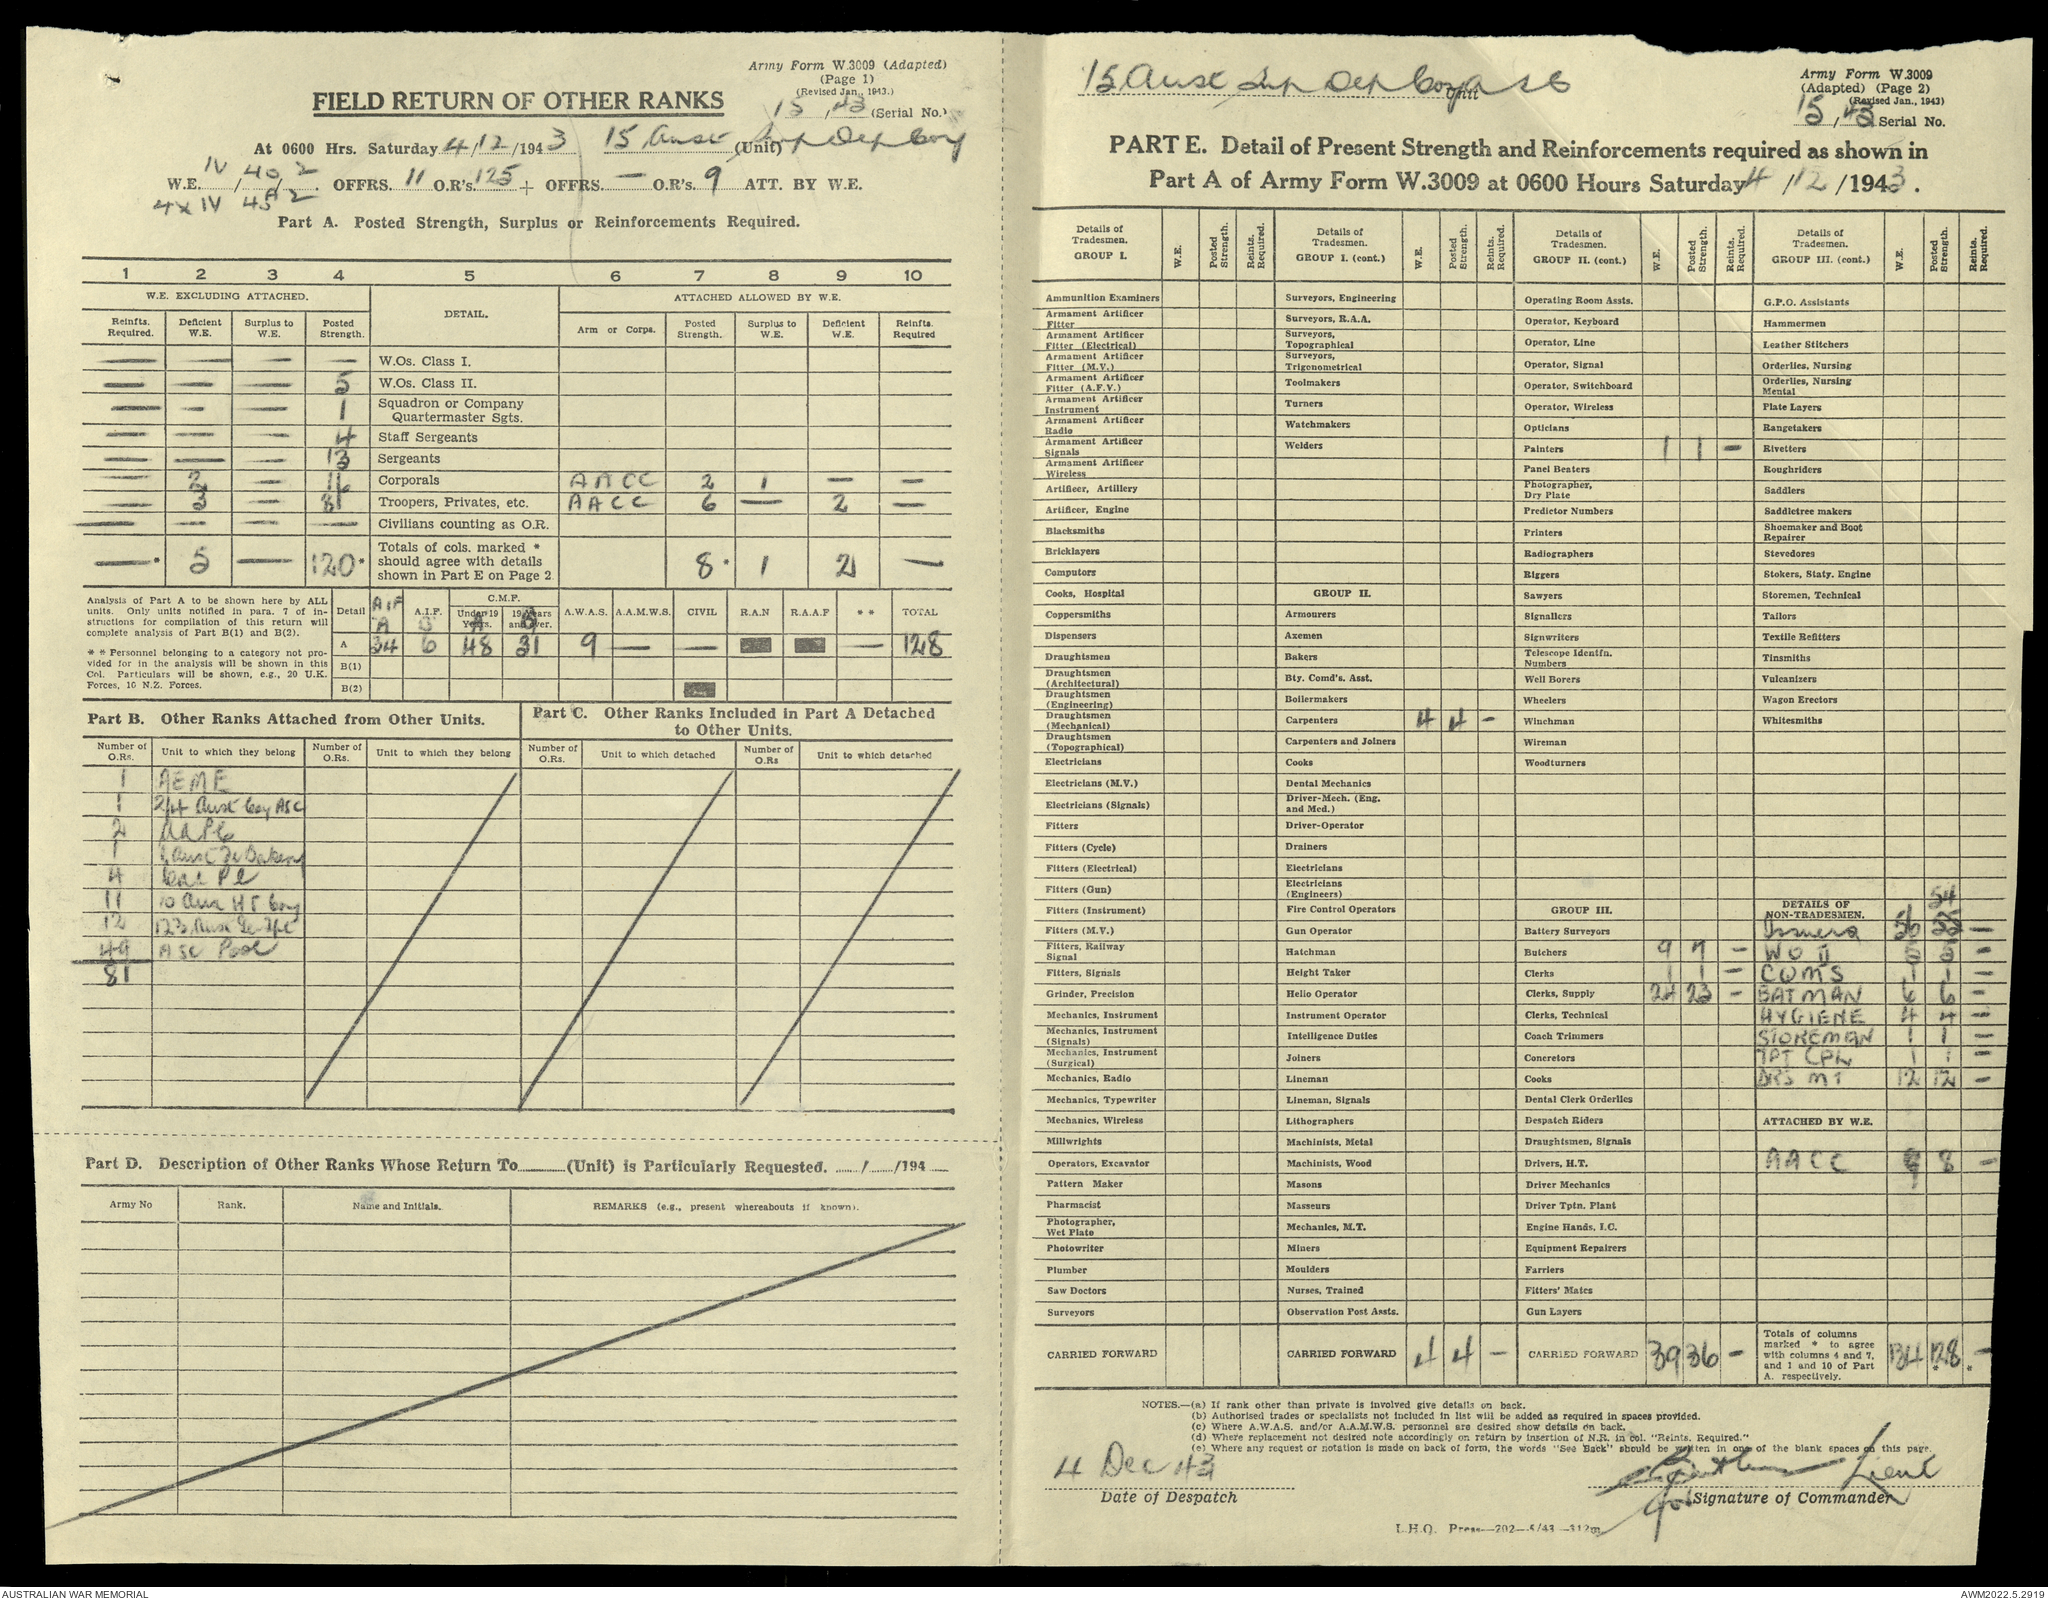 Army Form W.3009 (Adapted)
(Page 1)
(Revised Jan., 1943.)
FIELD RETURN OF OTHER RANKS
15 / 43 (Serial No.)
At 0600 Hrs. Saturday 4/12/1943 15 Aust Sup Dep Coy (Unit)
W.E. IV / 40 / 2 OFFRS. 11 O.R's. 125 + OFFRS. — O.R's. 9 ATT. BY W.E.
4 x IV 45A 2
Part A. Posted Strength, Surplus or Reinforcements Required.
1 2 3 4 5 6 7 8 9 10
W.E. EXCLUDING ATTACHED. DETAIL. ATTACHED ALLOWED BY W.E.
Reinfts. Required. Deficient W.E. Surplus to W.E. Posted Strength. Arm or Corps. Posted Strength. Surplus to W.E. Deficient W.E. Reinfts. Required
— — — — W.Os. Class I.
— — — 5 W.Os. Class II.
— — — 1 Squadron or Company Quartermaster Sgts.
— — — 4 Staff Sergeants
— — — 13 Sergeants
— 2 — 16 Corporals AACC 2 1 — —
— 3 — 81 Troopers, Privates, etc. AACC 6 — 2 —
— — — — Civilians counting as O.R.
—* 5 — 120* Totals of cols. marked * should agree with details shown in Part E on Page 2 8* 1 2 —
Analysis of Part A to be shown here by ALL units. Only units notified in para. 7 of instructions for compilation of this return will complete analysis of Part B(1) and B(2).
* * Personnel belonging to a category not provided for in the analysis will be shown in this Col. Particulars will be shown, e.g., 20 U.K. Forces, 10 N.Z. Forces.
Detail AIF A A.I.F. B C.M.F. Under 19 Years. A 19 Years and over. B A.W.A.S. A.A.M.W.S. CIVIL R.A.N R.A.A.F * * TOTAL
A 34 6 48 31 9 — — — 128
B(1)
B(2)
Part B. Other Ranks Attached from Other Units.
Part C. Other Ranks Included in Part A Detached to Other Units.
Number of O.Rs. Unit to which they belong Number of O.Rs. Unit to which they belong Number of O.Rs. Unit to which detached Number of O.Rs Unit to which detached
1 AEME
1 2/4 Aust Coy ASC
2 AAPC
1 Aust Fd Bakery
4 Pl
11 10 Aus HT Coy
12 123 Aust
49 ASC Pool
81
Part D. Description of Other Ranks Whose Return To (Unit) is Particularly Requested. / /194
Army No Rank. Name and Initials. REMARKS (e.g., present whereabouts if known).
15 Aust Sup Dep Coy ASC
Unit
Army Form W.3009
(Adapted) (Page 2)
(Revised Jan., 1943)
15 / 43 Serial No.
PART E. Detail of Present Strength and Reinforcements required as shown in
Part A of Army Form W.3009 at 0600 Hours Saturday 4/12/1943.
Details of Tradesmen. GROUP I. W.E. Posted Strength. Reints. Required.
Ammunition Examiners
Armament Artificer Fitter
Armament Artificer Fitter (Electrical)
Armament Artificer Fitter (M.V.)
Armament Artificer Fitter (A.F.V.)
Armament Artificer Instrument
Armament Artificer Radio
Armament Artificer Signals
Armament Artificer Wireless
Artificer, Artillery
Artificer, Engine
Blacksmiths
Bricklayers
Computors
Cooks, Hospital
Coppersmiths
Dispensers
Draughtsmen
Draughtsmen (Architectural)
Draughtsmen (Engineering)
Draughtsmen (Mechanical)
Draughtsmen (Topographical)
Electricians
Electricians (M.V.)
Electricians (Signals)
Fitters
Fitters (Cycle)
Fitters (Electrical)
Fitters (Gun)
Fitters (Instrument)
Fitters (M.V.)
Fitters, Railway Signal
Fitters, Signals
Grinder, Precision
Mechanics, Instrument
Mechanics, Instrument (Signals)
Mechanics, Instrument (Surgical)
Mechanics, Radio
Mechanics, Typewriter
Mechanics, Wireless
Millwrights
Operators, Excavator
Pattern Maker
Pharmacist
Photographer, Wet Plate
Photowriter
Plumber
Saw Doctors
Surveyors
CARRIED FORWARD
Details of Tradesmen. GROUP I. (cont.) W.E. Posted Strength. Reints. Required.
Surveyors, Engineering
Surveyors, R.A.A.
Surveyors, Topographical
Surveyors, Trigonometrical
Toolmakers
Turners
Watchmakers
Welders
GROUP II.
Armourers
Axemen
Bakers
Bty. Comd's. Asst.
Boilermakers
Carpenters 4 4 -
Carpenters and Joiners
Cooks
Dental Mechanics
Driver-Mech. (Eng. and Med.)
Driver-Operator
Drainers
Electricians
Electricians (Engineers)
Fire Control Operators
Gun Operator
Hatchman
Height Taker
Helio Operator
Instrument Operator
Intelligence Duties
Joiners
Lineman
Lineman, Signals
Lithographers
Machinists, Metal
Machinists, Wood
Masons
Masseurs
Mechanics, M.T.
Miners
Moulders
Nurses, Trained
Observation Post Assts.
CARRIED FORWARD 4 4 -
Details of Tradesmen. GROUP II. (cont.) W.E. Posted Strength. Reints. Required.
Operating Room Assts.
Operator, Keyboard
Operator, Line
Operator, Signal
Operator, Switchboard
Operator, Wireless
Opticians
Painters 1 1 -
Panel Beaters
Photographer, Dry Plate
Predictor Numbers
Printers
Radiographers
Riggers
Sawyers
Signallers
Signwriters
Telescope Identfn. Numbers
Well Borers
Wheelers
Winchman
Wireman
Woodturners
GROUP III.
Battery Surveyors
Butchers 9 7 -
Clerks 1 1 -
Clerks, Supply 24 23 -
Clerks, Technical
Coach Trimmers
Concretors
Cooks
Dental Clerk Orderlies
Despatch Riders
Draughtsmen, Signals
Drivers, H.T.
Driver Mechanics
Driver Tptn. Plant
Engine Hands, I.C.
Equipment Repairers
Farriers
Fitters' Mates
Gun Layers
CARRIED FORWARD 39 36 -
Details of Tradesmen. GROUP III. (cont.) W.E. Posted Strength. Reints. Required.
G.P.O. Assistants
Hammermen
Leather Stitchers
Orderlies, Nursing
Orderlies, Nursing Mental
Plate Layers
Rangetakers
Rivetters
Roughriders
Saddlers
Saddletree makers
Shoemaker and Boot Repairer
Stevedores
Stokers, Staty. Engine
Storemen, Technical
Tailors
Textile Refitters
Tinsmiths
Vulcanizers
Wagon Erectors
Whitesmiths
DETAILS OF NON-TRADESMEN. 54
Issuers 56 -
WO II 5 5 -
CQMS 1 1 -
BATMAN 6 6 -
HYGIENE 4 4 -
STOREMAN 1 1 -
TPT CPL 1 1 -
DRS MT 12 12 -
ATTACHED BY W.E.
AACC 9 8 -
Totals of columns marked * to agree with columns 4 and 7, and 1 and 10 of Part A. respectively. 134 128* *-
NOTES.—(a) If rank other than private is involved give details on back.
(b) Authorised trades or specialists not included in list will be added as required in spaces provided.
(c) Where A.W.A.S. and/or A.A.M.W.S. personnel are desired show details on back.
(d) Where replacement not desired note accordingly on return by insertion of N.R. in col. "Reints. Required."
(e) Where any request or notation is made on back of form, the words "See Back" should be written in one of the blank spaces on this page.
4 Dec 43
Lieut
Date of Despatch
for Signature of Commander
L.H.Q. Press—202—5/43—312m
AUSTRALIAN WAR MEMORIAL
AWM2022.5.2919